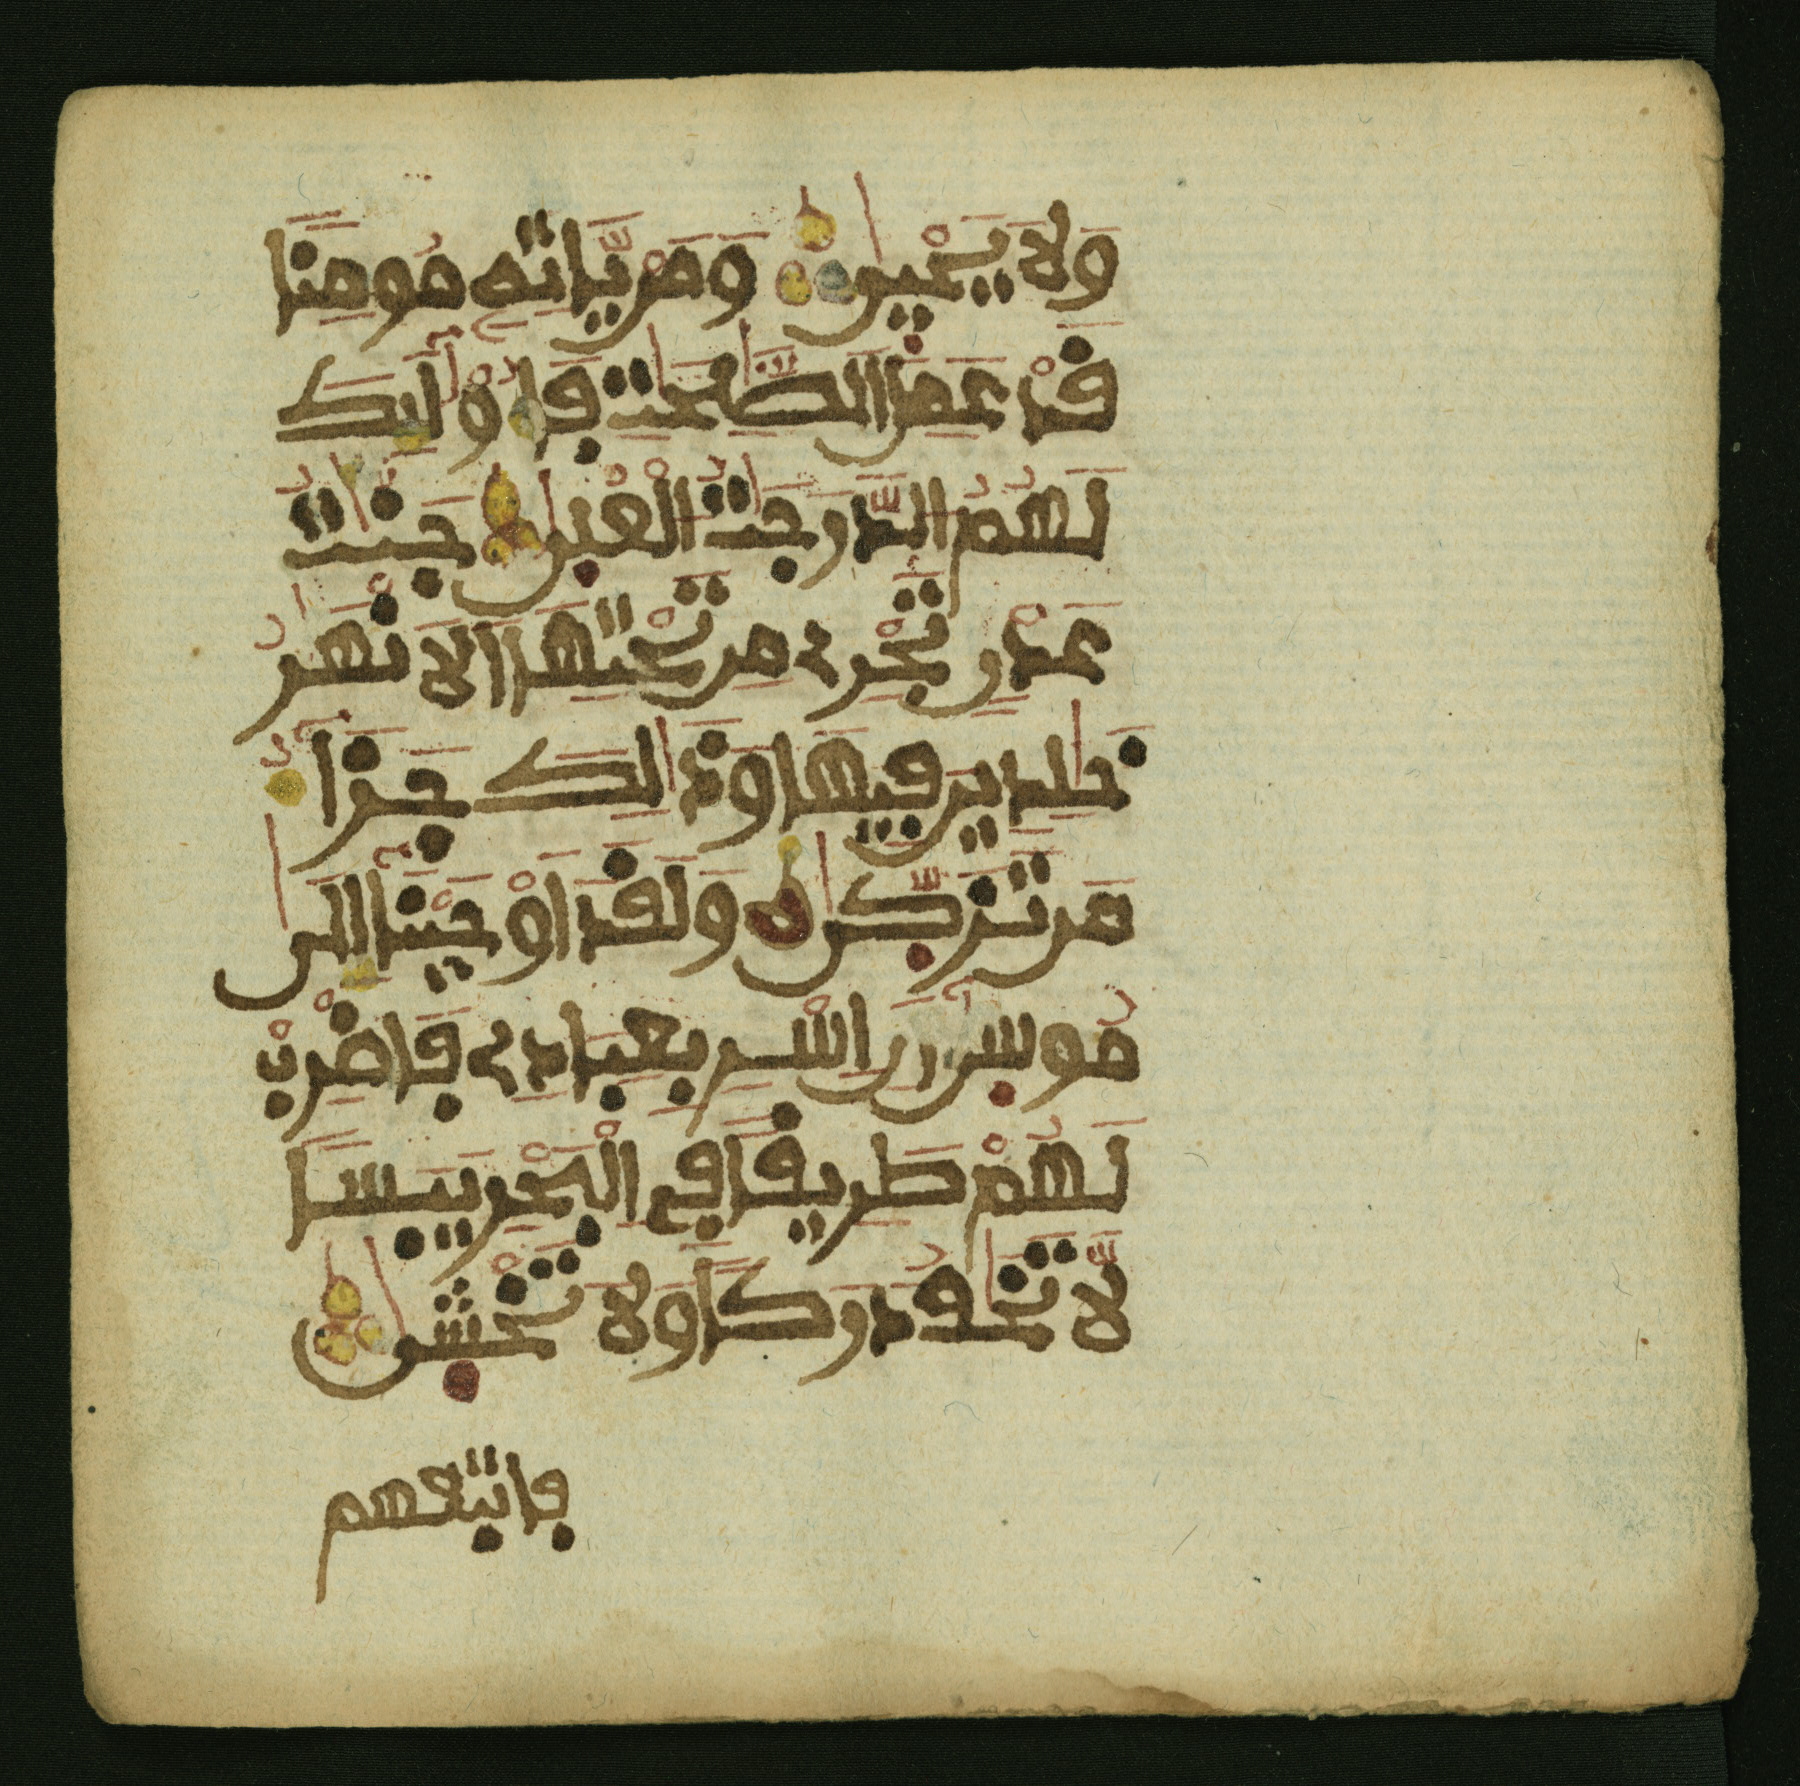 وَلَا يَحْيىٰ وَمَن يَّاتِهِ مُومِنًا
قَدْ عَمِلَ الصَّٰلِحَٰتِ فَأُوْلَٰئِكَ
لَهُمُ الدَّرَجَٰتُ الْعُلىٰ جَنَّٰتُ
عَدْنٍ تَجْرِے مِن تَحْتِهَا الَانْهَٰرُ
خَٰلِدِينَ فِيهَا وَذَٰلِكَ جَزَآءُ
مَن تَزَكّىٰ وَلَقَدَ اَوْحَيْنَا إِلَىٰ
مُوسىٰ أَنِ اسْرِ بِعِبَادِے فَاضْرِبْ
لَهُمْ طَرِيقًا فِي الْبَحْرِ يَبَسًا
لَّا تَخَٰفُ دَرَكًا وَلَا تَخْشىٰ
فاتبعهم